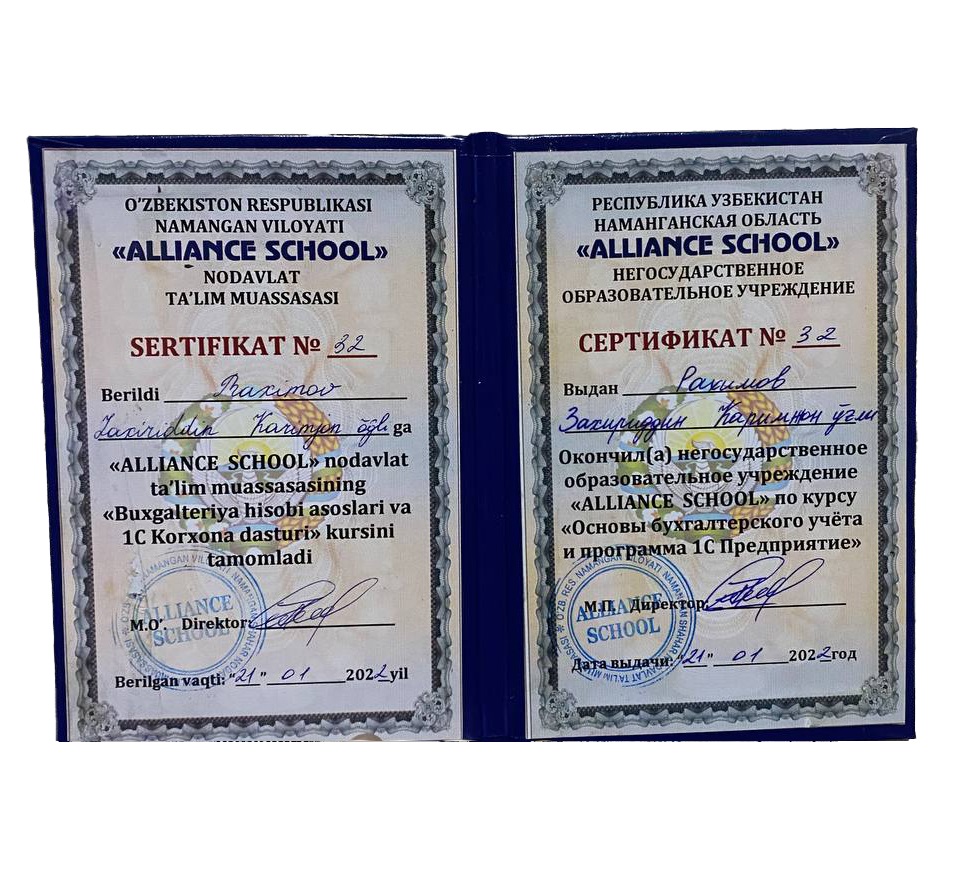 O'ZBEKISTON RESPUBLIKASI
NAMANGAN VILOYATI
«ALLIANCE SCHOOL»
NODAVLAT
TA'LIM MUASSASASI
SERTIFIKAT № 32
Berildi Raximov
Zaxiriddin Karimjon o'g'li ga
«ALLIANCE SCHOOL» nodavlat
ta'lim muassasasining
«Buxgalteriya hisobi asoslari va
1C Korxona dasturi» kursini
tamomladi
M.O'. Direktor:
ALLIANCE
SCHOOL
Berilgan vaqti: "21" 01 2022 yil
РЕСПУБЛИКА УЗБЕКИСТАН
НАМАНГАНСКАЯ ОБЛАСТЬ
«ALLIANCE SCHOOL»
НЕГОСУДАРСТВЕННОЕ
ОБРАЗОВАТЕЛЬНОЕ УЧРЕЖДЕНИЕ
СЕРТИФИКАТ № 32
Выдан Рахимов
Захириддин Каримжон ўғли
Окончил(а) негосударственное
образовательное учреждение
«ALLIANCE SCHOOL» по курсу
«Основы бухгалтерского учёта
и программа 1С Предприятие»
М.П. Директор:
ALLIANCE
SCHOOL
Дата выдачи: "21" 01 2022 год